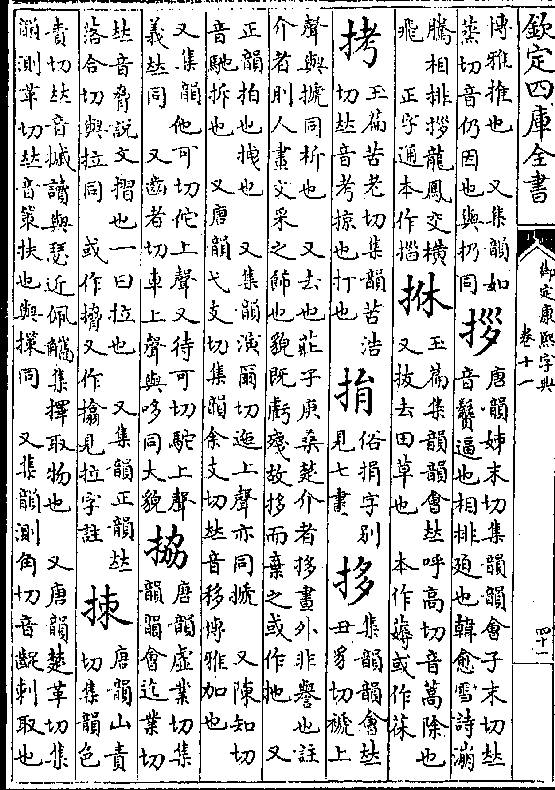 欽定四庫全書
御定康熙字典
卷十一
四十二
博雅推也 又集韻如
蒸切音仍因也與扔同
拶
唐韻姊末切集韻韻會子末切𠀤
音鬢逼也相排廹也韓愈雪詩㵗
騰相排拶龍鳳交橫
飛 正字通本作㨮
𢫦
玉篇集韻韻會𠀤呼高切音蒿除也
又拔去田草也 本作薅或作茠
拷
玉篇苦老切集韻苦浩
切𠀤音考掠也打也
𢪸
俗捐字別
見七畫
拸
集韻韻會𠀤
丑豸切褫上
聲與搋同析也 又去也莊子庚桑楚介者拸畫外非譽也註
介者刖人畫文采之飾也貌旣虧殘故拸而棄之或作扡 又
正韻拍也拽也 又集韻演爾切迤上聲亦同搋 又陳知切
音馳拆也 又唐韻弋支切集韻余支切𠀤音移博雅加也
又集韻他可切佗上聲又待可切駝上聲
義𠀤同 又齒者切車上聲與哆同大貌
拹
唐韻虛業切集
韻韻會迄業切
𠀤音脅說文摺也一曰拉也 又集韻正韻𠀤
落合切與拉同 或作搚又作㩉見拉字註
拺
唐韻山責
切集韻色
責切𠀤音摵讀與瑟近佩觿集擇取物也 又唐韻楚革切集
韻測革切𠀤音策扶也與㩍同 又集韻測角切音齪刺取也